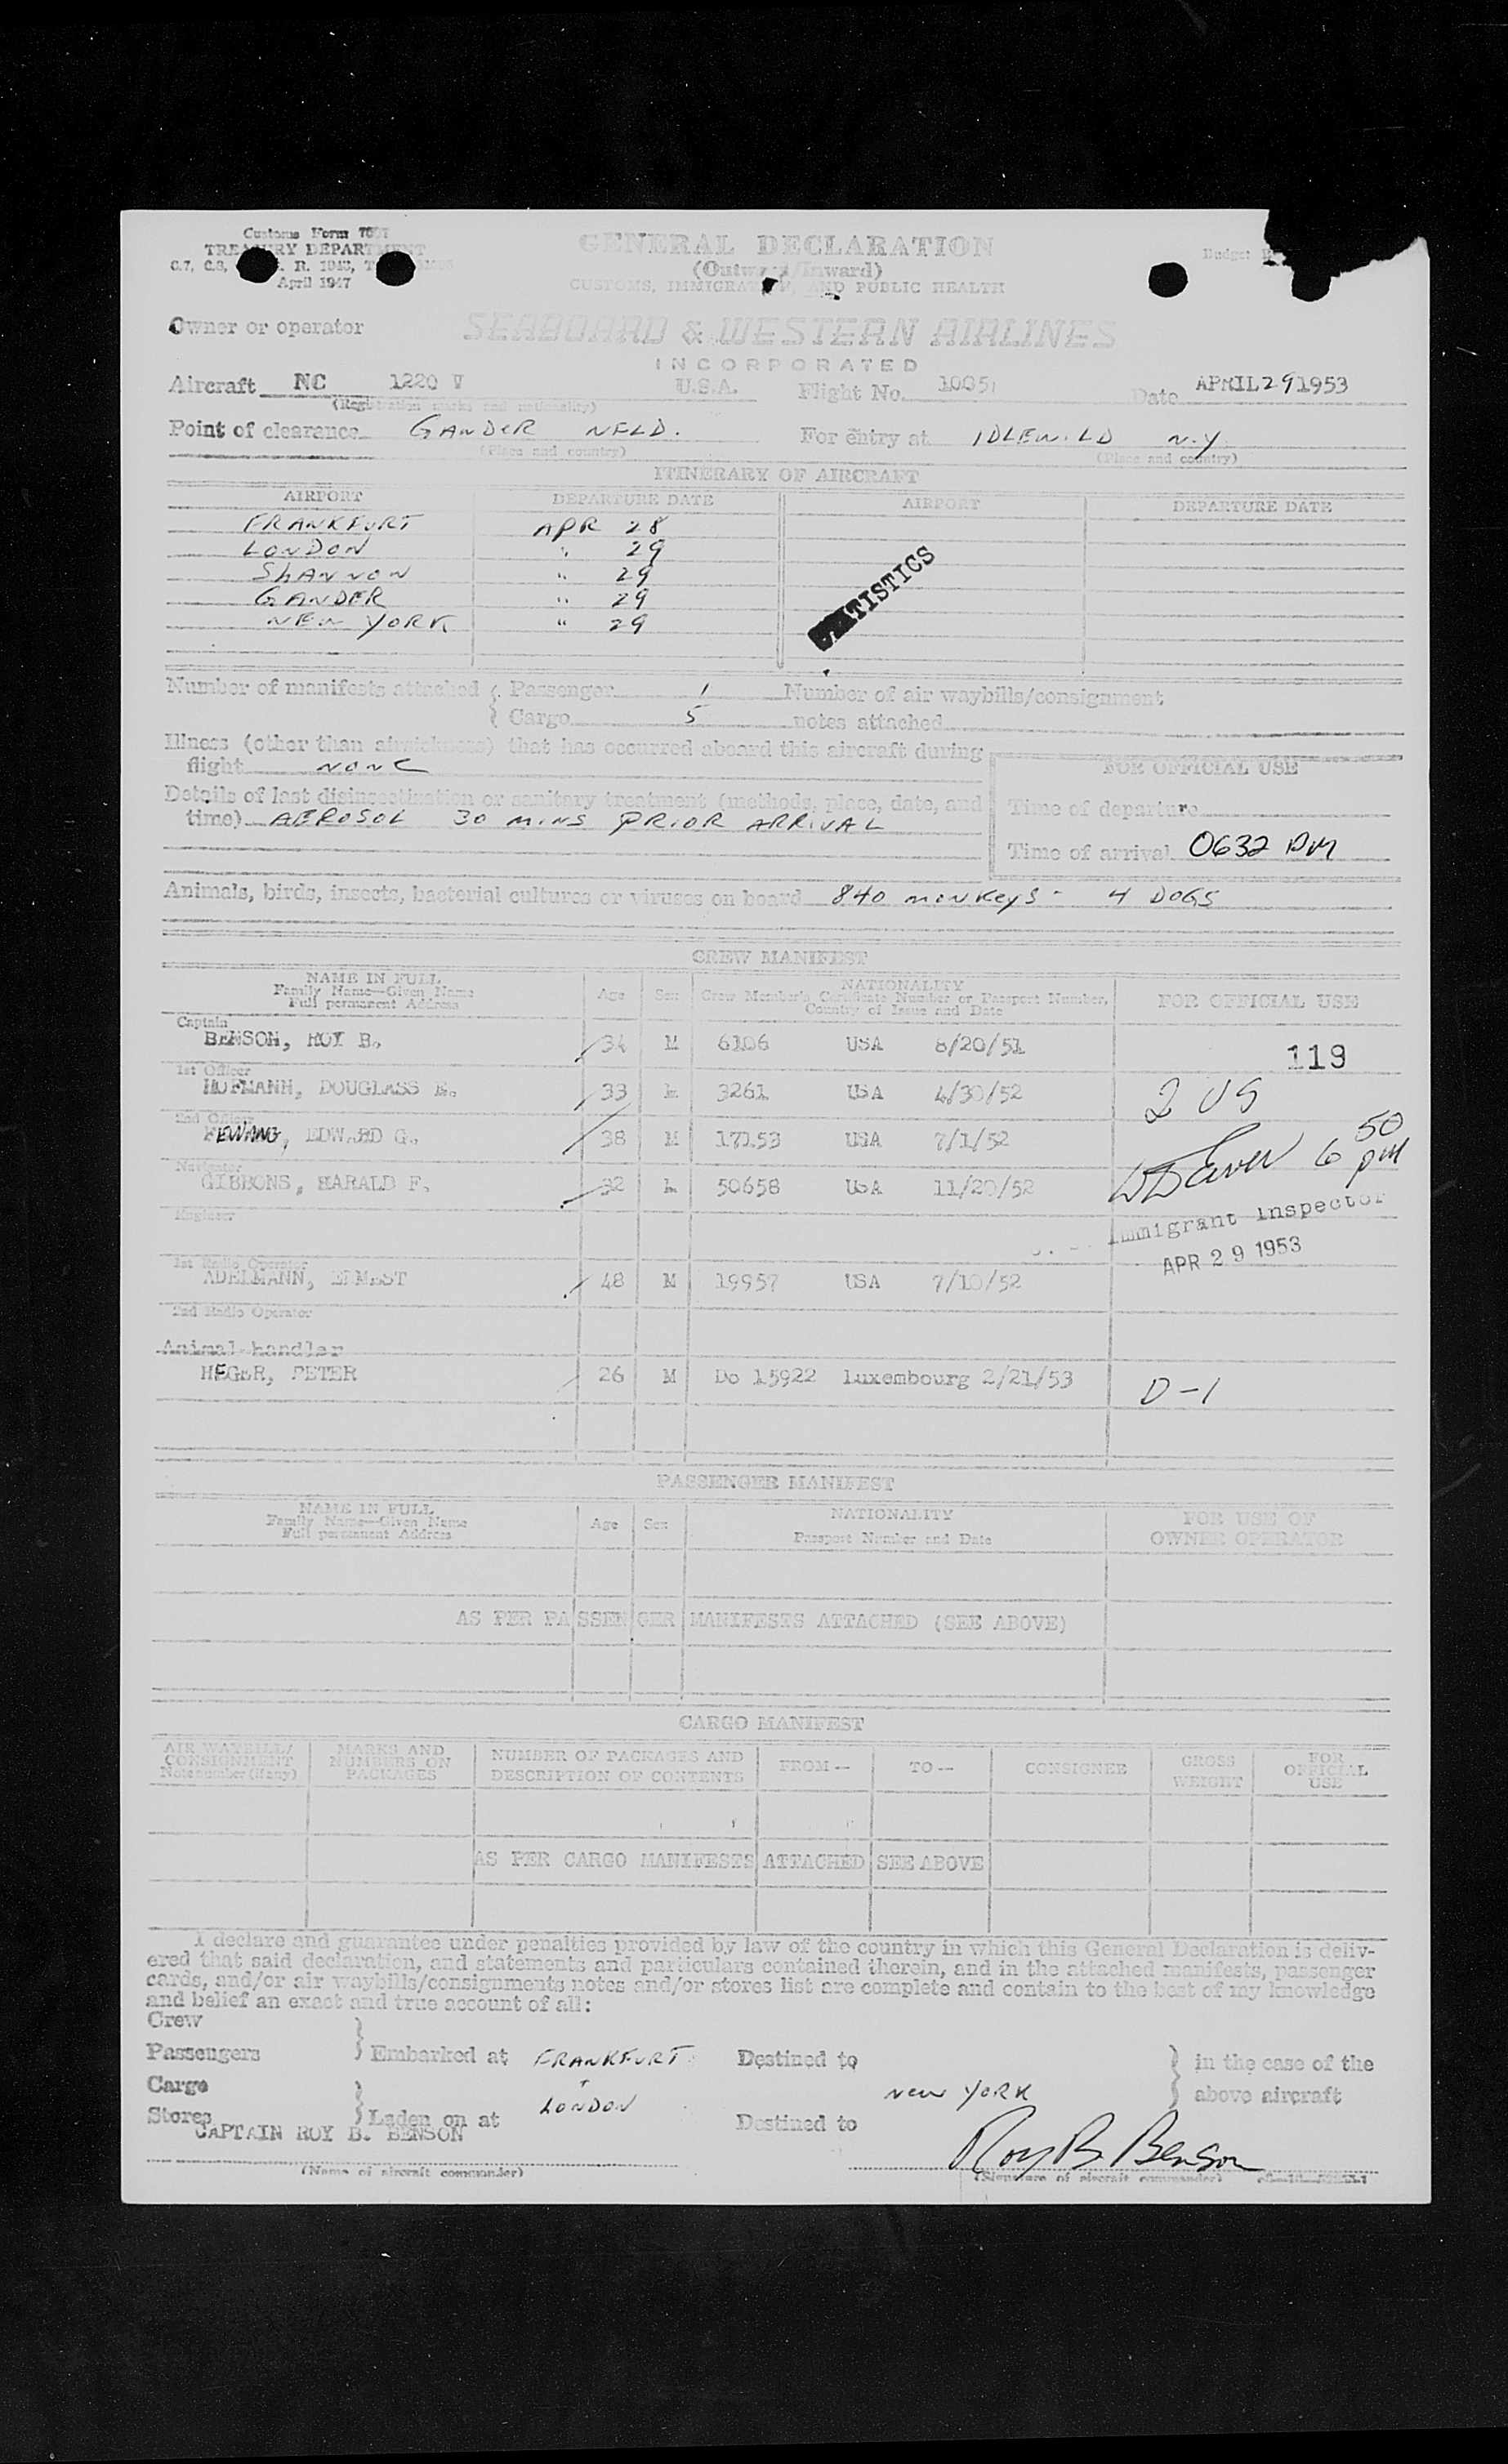 Customs Form 7507
TREASURY DEPARTMENT
April 1947
GENERAL DECLARATION
(Outward/Inward)
CUSTOMS, IMMIGRATION, AND PUBLIC HEALTH
Budget
Owner or operator SEABOARD & WESTERN AIRLINES
INCORPORATED
Aircraft NC 1220 V U.S.A. Flight No. 1005 Date APRIL 29 1953
(Registration marks and nationality)
Point of clearance GANDER NFLD. For entry at IDLEWILD N.Y.
(Place and country) (Place and country)
ITINERARY OF AIRCRAFT
AIRPORT DEPARTURE DATE AIRPORT DEPARTURE DATE
FRANKFURT APR 28
LONDON " 29
SHANNON " 29
GANDER " 29
NEW YORK " 29
STATISTICS
Number of manifests attached { Passenger 1 Number of air waybills/consignment
{ Cargo 5 notes attached
Illness (other than airsickness) that has occurred aboard this aircraft during
flight NONE
FOR OFFICIAL USE
Details of last disinsectization or sanitary treatment (methods, place, date, and
time) AEROSOL 30 MINS PRIOR ARRIVAL
Time of departure
Time of arrival 0632 PM
Animals, birds, insects, bacterial cultures or viruses on board 840 monkeys - 4 DOGS
CREW MANIFEST
NAME IN FULL
Family Name—Given Name
Full permanent Address
Age Sex
NATIONALITY
Crew Member's Certificate Number or Passport Number,
Country of Issue and Date
FOR OFFICIAL USE
Captain
BENSON, ROY B. 34 M 6106 USA 8/20/51
119
1st Officer
HOFMANN, DOUGLASS E. 33 M 3261 USA 4/30/52
2 US
2nd Officer
EDWARD G. 38 M 17153 USA 7/1/52
6 50 pm
Navigator
GIBBONS, HARALD F. 32 M 50658 USA 11/20/52
Immigrant Inspector
Engineer
APR 29 1953
1st Radio Operator
ADELMANN, ERNEST 48 M 19957 USA 7/10/52
2nd Radio Operator
Animal handler
HEGER, PETER 26 M Do 15922 Luxembourg 2/21/53
D-1
PASSENGER MANIFEST
NAME IN FULL
Family Name—Given Name
Full permanent Address
Age Sex
NATIONALITY
Passport Number and Date
FOR USE OF
OWNER OPERATOR
AS PER PASSENGER MANIFESTS ATTACHED (SEE ABOVE)
CARGO MANIFEST
AIR WAYBILL/
CONSIGNMENT
Note number (if any)
MARKS AND
NUMBERS ON
PACKAGES
NUMBER OF PACKAGES AND
DESCRIPTION OF CONTENTS
FROM— TO— CONSIGNEE
GROSS
WEIGHT
FOR
OFFICIAL
USE
AS PER CARGO MANIFESTS ATTACHED SEE ABOVE
I declare and guarantee under penalties provided by law of the country in which this General Declaration is deliv-
ered that said declaration, and statements and particulars contained therein, and in the attached manifests, passenger
cards, and/or air waybills/consignments notes and/or stores list are complete and contain to the best of my knowledge
and belief an exact and true account of all:
Crew
Passengers } Embarked at FRANKFURT Destined to } in the case of the
Cargo + NEW YORK above aircraft
Stores } Laden on at LONDON Destined to
CAPTAIN ROY B. BENSON
Roy B Benson
(Name of aircraft commander) (Signature of aircraft commander)